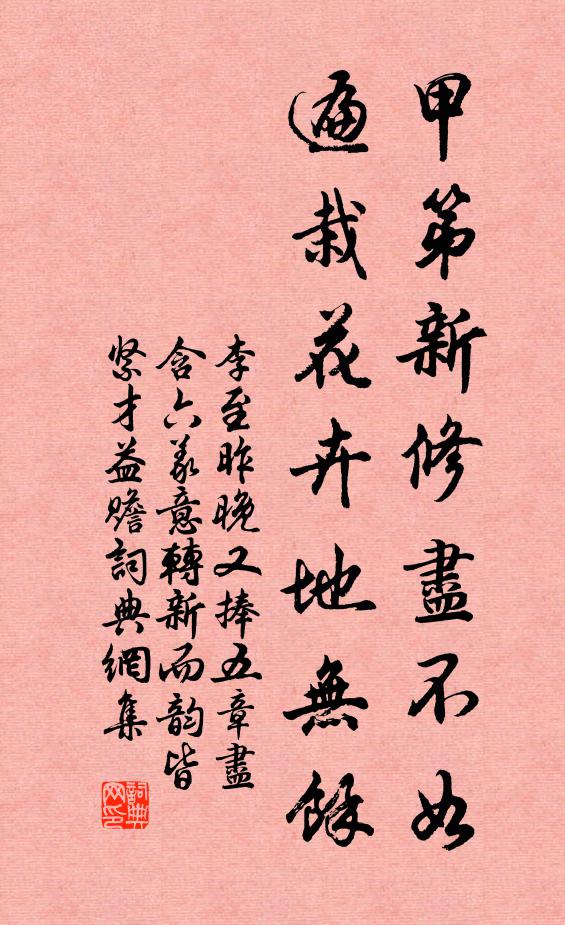 甲第新修盡不如
遍栽花卉地無餘
李至昨晚又捧五章盡
含六義意轉新而韵皆
紧才益贍詞典網集
詞典网印